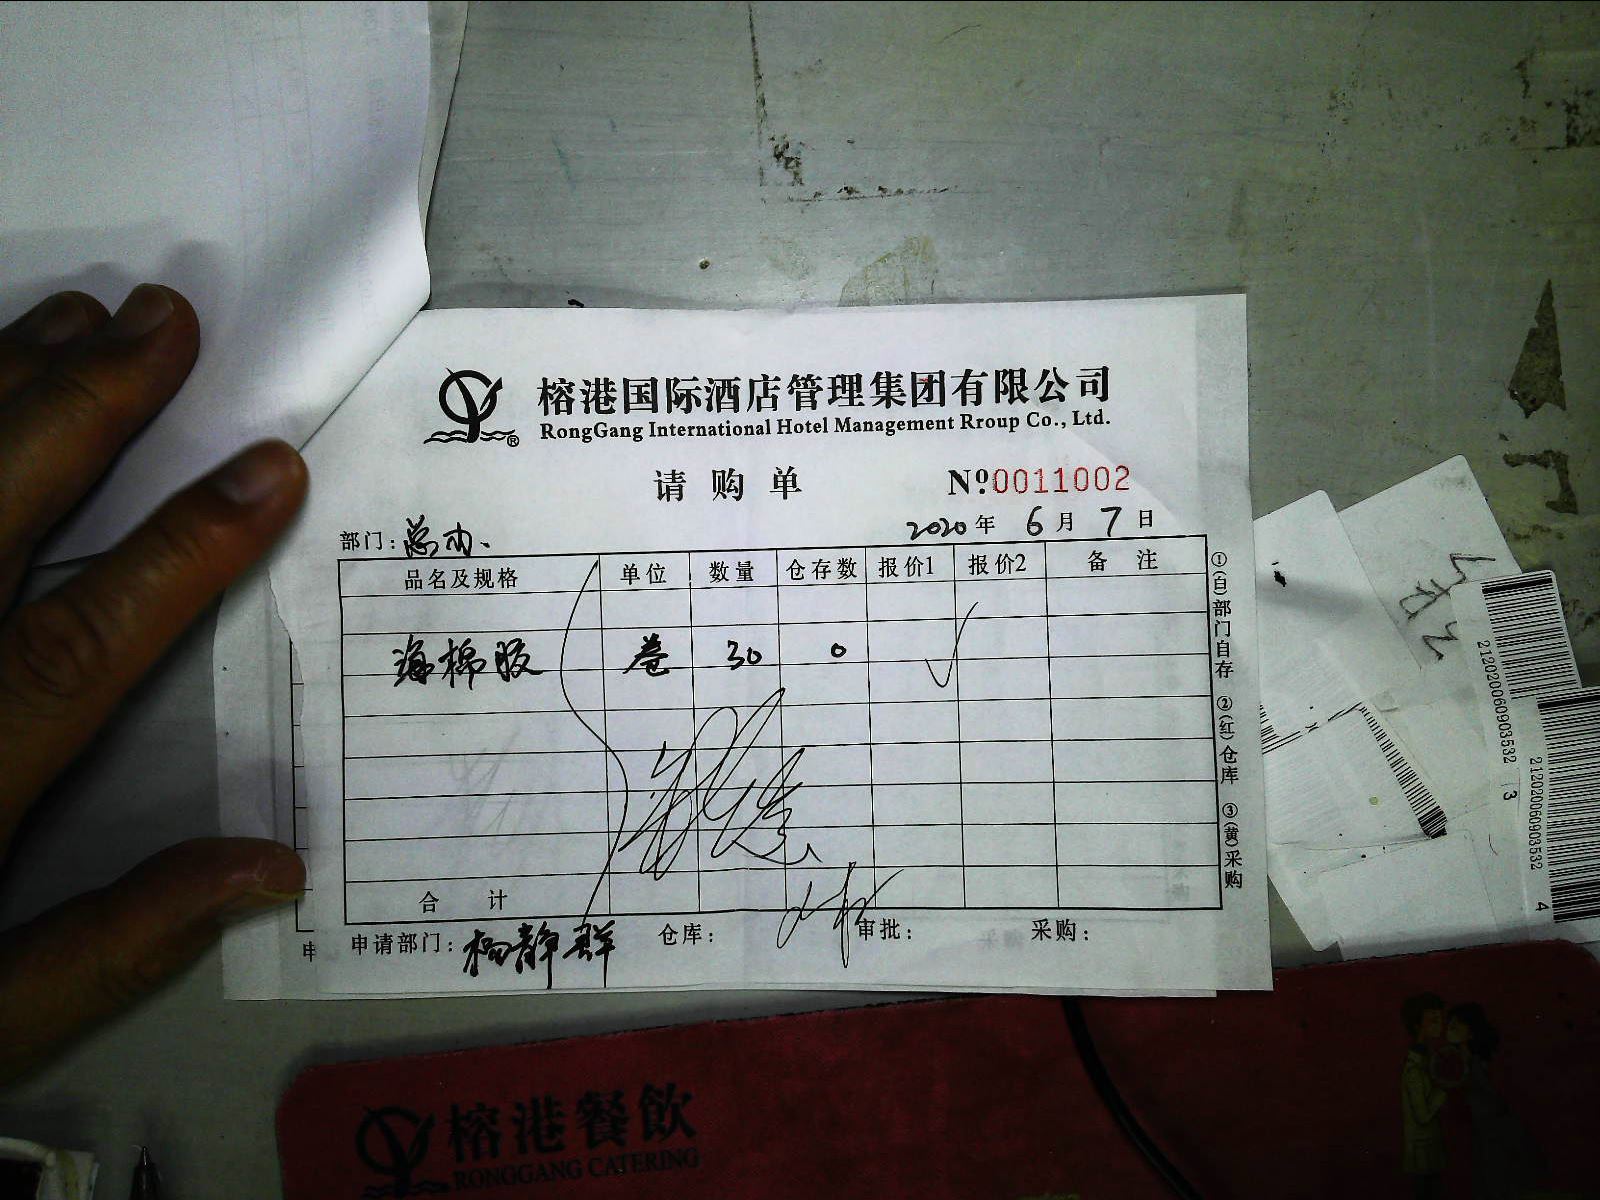 榕港国际酒店管理集团有限公司
RongGang International Hotel Management Rroup Co., Ltd.
请购单 Nº0011002
部门: 总办. 2020年 6月 7日
品名及规格 单位 数量 仓存数 报价1 报价2 备注
海棉胶 卷 30 0
合计
申请部门: 杨静群 仓库: 审批: 采购:
①(白)部门自存 ②(红)仓库 ③(黄)采购
申
212020060903532 3
212020060903532 4
榕港餐飲
RONGGANG CATERING